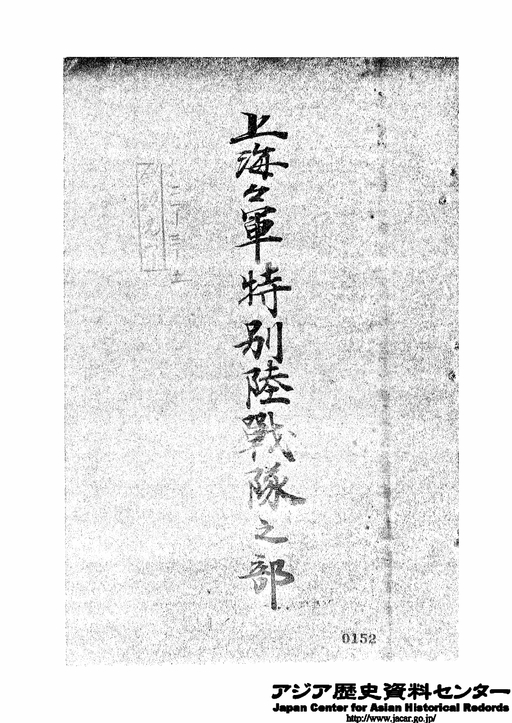 上海々軍特別陸戰隊之部
0152
アジア歴史資料センター
Japan Center for Asian Historical Records
http://www.jacar.go.jp/